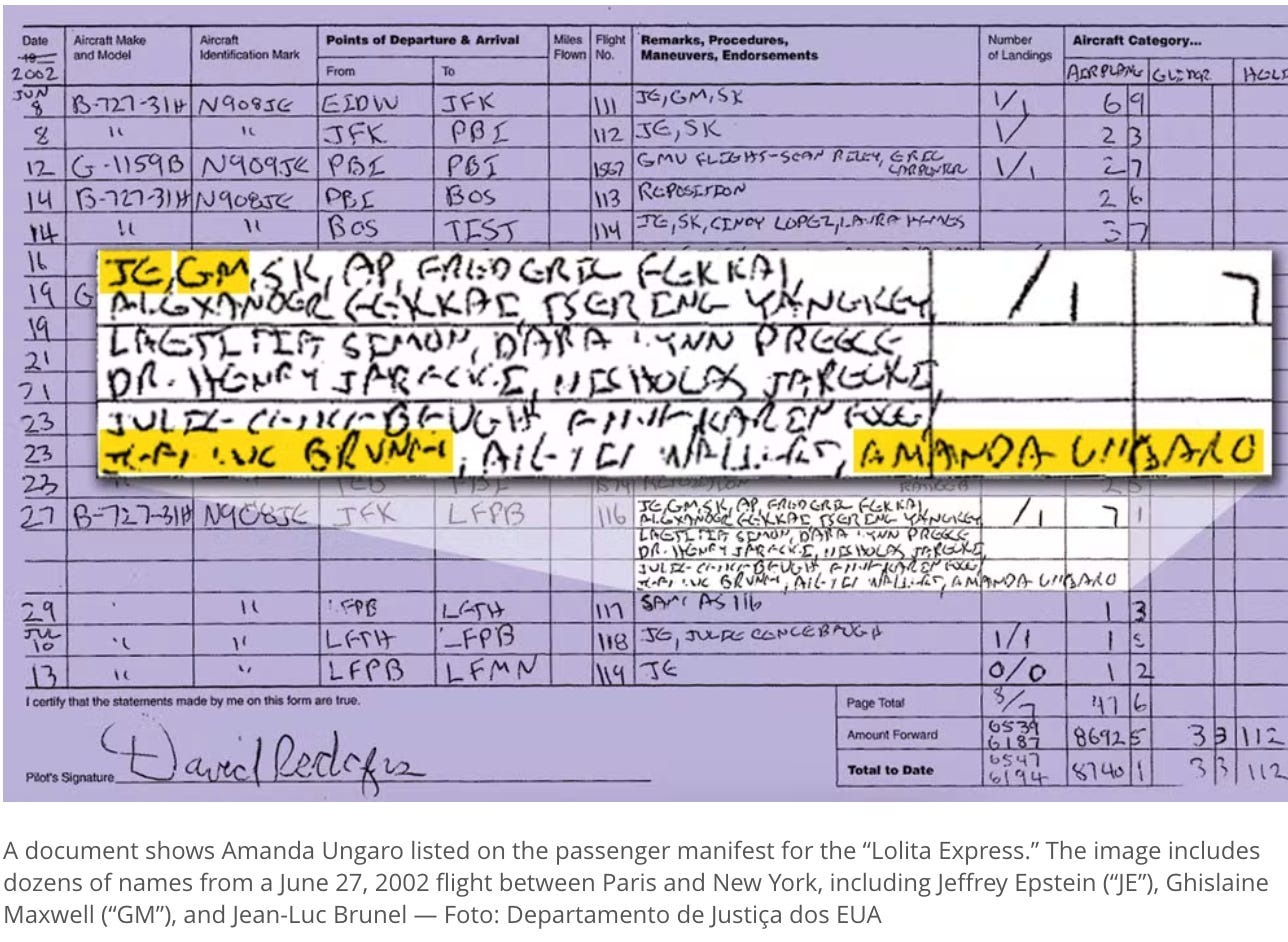 Date Aircraft Make and Model Aircraft Identification Mark Points of Departure & Arrival Miles Flown Flight No. Remarks, Procedures, Maneuvers, Endorsements Number of Landings Aircraft Category...
2002 From To AIRPLANE GLIDER
JUN 8 B-727-31H N908JE EIDW JFK 111 JE, GM, SK 1/1 6 9
8 " " JFK PBI 112 JE, SK 1/ 2 3
12 G-1159B N909JE PBI PBI 1567 GMU FLIGHTS-SEAN RILEY, ERIC CARPENTER 1/1 2 7
14 B-727-31H N908JE PBI BOS 113 REPOSITION 2 6
14 " " BOS TEST 114 JE, SK, CINDY LOPEZ, LAURA 3 7
16
JE, GM, SK, AP, FREDERIC FEKKAI, /1 7
19 G
ALEXANDER FEKKAI, TSERING YANGKEY
19
LAETITIA SIMON, DARA LYNN PREECE
21
DR. HENRY JARECKI, NICHOLAS JARECKI,
21
23
JULIE
23
BRUNEL, AMANDA UNGARO
23
27 B-727-31H N908JE JFK LFPB 116 JE, GM, SK, AP, FREDERIC FEKKAI, /1 7 1
ALEXANDER FEKKAI, TSERING YANGKEY
LAETITIA SIMON, DARA LYNN PREECE
DR. HENRY JARECKI, NICHOLAS JARECKI,
JULIE
BRUNEL, AMANDA UNGARO
29 " LFPB LFTH 117 SAME AS 116 1 3
JUL 10 " " LFTH LFPB 118 JE, JULIE 1/1 1 5
13 " " LFPB LFMN 119 JE 0/0 1 2
I certify that the statements made by me on this form are true.
Page Total 8/7 47 6
Amount Forward 6539 6187 8692 5 3 3 112
Pilot's Signature David Rodgers
Total to Date 6547 6194 8740 1 3 3 112
A document shows Amanda Ungaro listed on the passenger manifest for the “Lolita Express.” The image includes
dozens of names from a June 27, 2002 flight between Paris and New York, including Jeffrey Epstein (“JE”), Ghislaine
Maxwell (“GM”), and Jean-Luc Brunel — Foto: Departamento de Justiça dos EUA